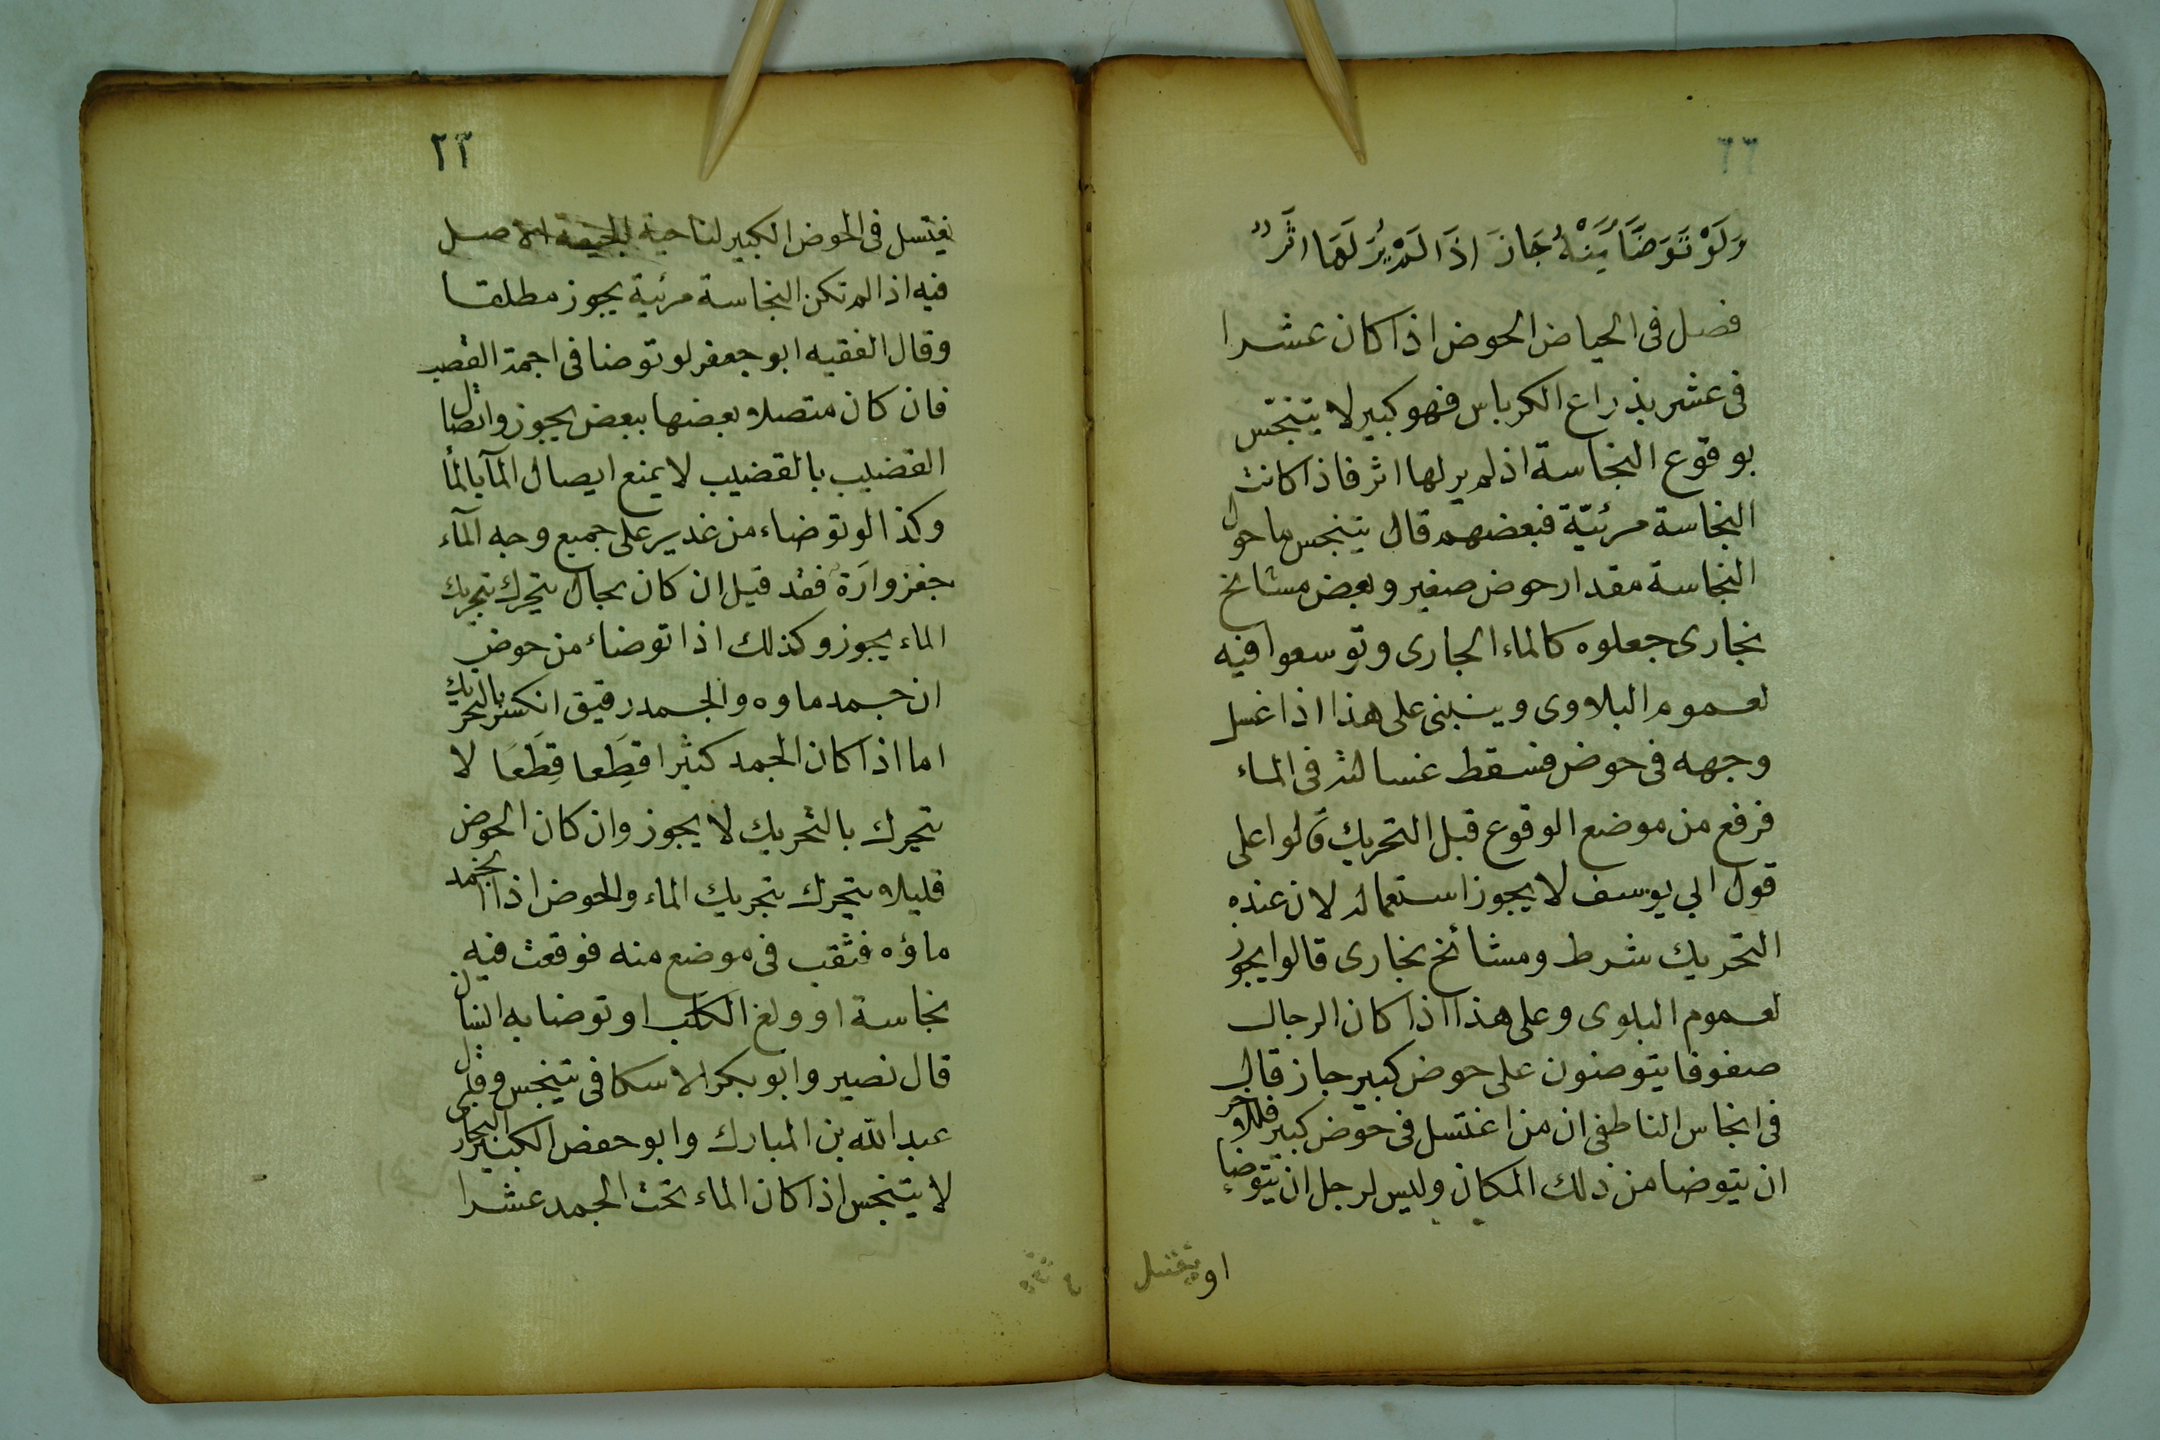 ٦٦
وَلَوْ تَوَضَّأَ مِنْهُ جَازَ اِذَا لَمْ يُرَ لَهَا اثَرٌ
فصل فى الحياض الحوض اذا كان عشرا
فى عشر بذراع الكرباس فهو كبير لا يتنجس
بوقوع النجاسة اذ لم ير لها اثر فاذا كانت
النجاسة مرئيّة فبعضهم قال يتنجس ما حول
النجاسة مقدار حوض صغير وبعض مشائخ
بخارى جعلوه كالماء الجارى وتوسعوا فيه
لعموم البلاوى وينبنى على هذا اذا غسل
وجهه فى حوض فسقط غسالته فى الماء
فرفع من موضع الوقوع قبل التحريك قالوا على
قول ابي يوسف لا يجوز استعماله لان عنده
التحريك شرط ومشائخ بخارى قالوا يجوز
لعموم البلوى وعلى هذا اذا كان الرجال
صفوفا يتوضئون على حوض كبير جاز قال
فى انجاس الناطفى ان من اغتسل فى حوض كبير فللآخر
ان يتوضا من ذلك المكان وليس لرجل ان يتوضاء
او يغتسل
٢٣
يغتسل فى الحوض الكبير لناحية الجيفة الاصل
فيه اذا لم تكن النجاسة مرئية يجوز مطلقا
وقال الفقيه ابو جعفر لو توضا فى اجمة القصب
فان كان متصلا بعضها ببعض يجوز واتصال
القضيب بالقضيب لا يمنع ايصال المآ بالمأ
وكذا لو توضاء من غدير على جميع وجه المآء
جغزوارَة فقد قيل ان كان بحال يتحرك بتحريك
الماء يجوز وكذلك اذا توضاء من حوض
ان جمد ماوه والجمد رقيق انكسر بالتحريك
اما اذا كان الجمد كثيرا قِطَعا قِطَعَا لا
يتحرك بالتحريك لا يجوز وان كان الحوض
قليلا يتحرك بتحريك الماء والحوض اذا انجمد
ماؤه فثقب فى موضع منه فوقعت فيه
نجاسة او ولغ الكلب او توضا به انسان
قال نصير وابو بكر الاسكافى يتنجس وقال
عبد الله بن المبارك وابو حفص الكبير البخارى
لا يتنجس اذا كان الماء تحت الجمد عشرا